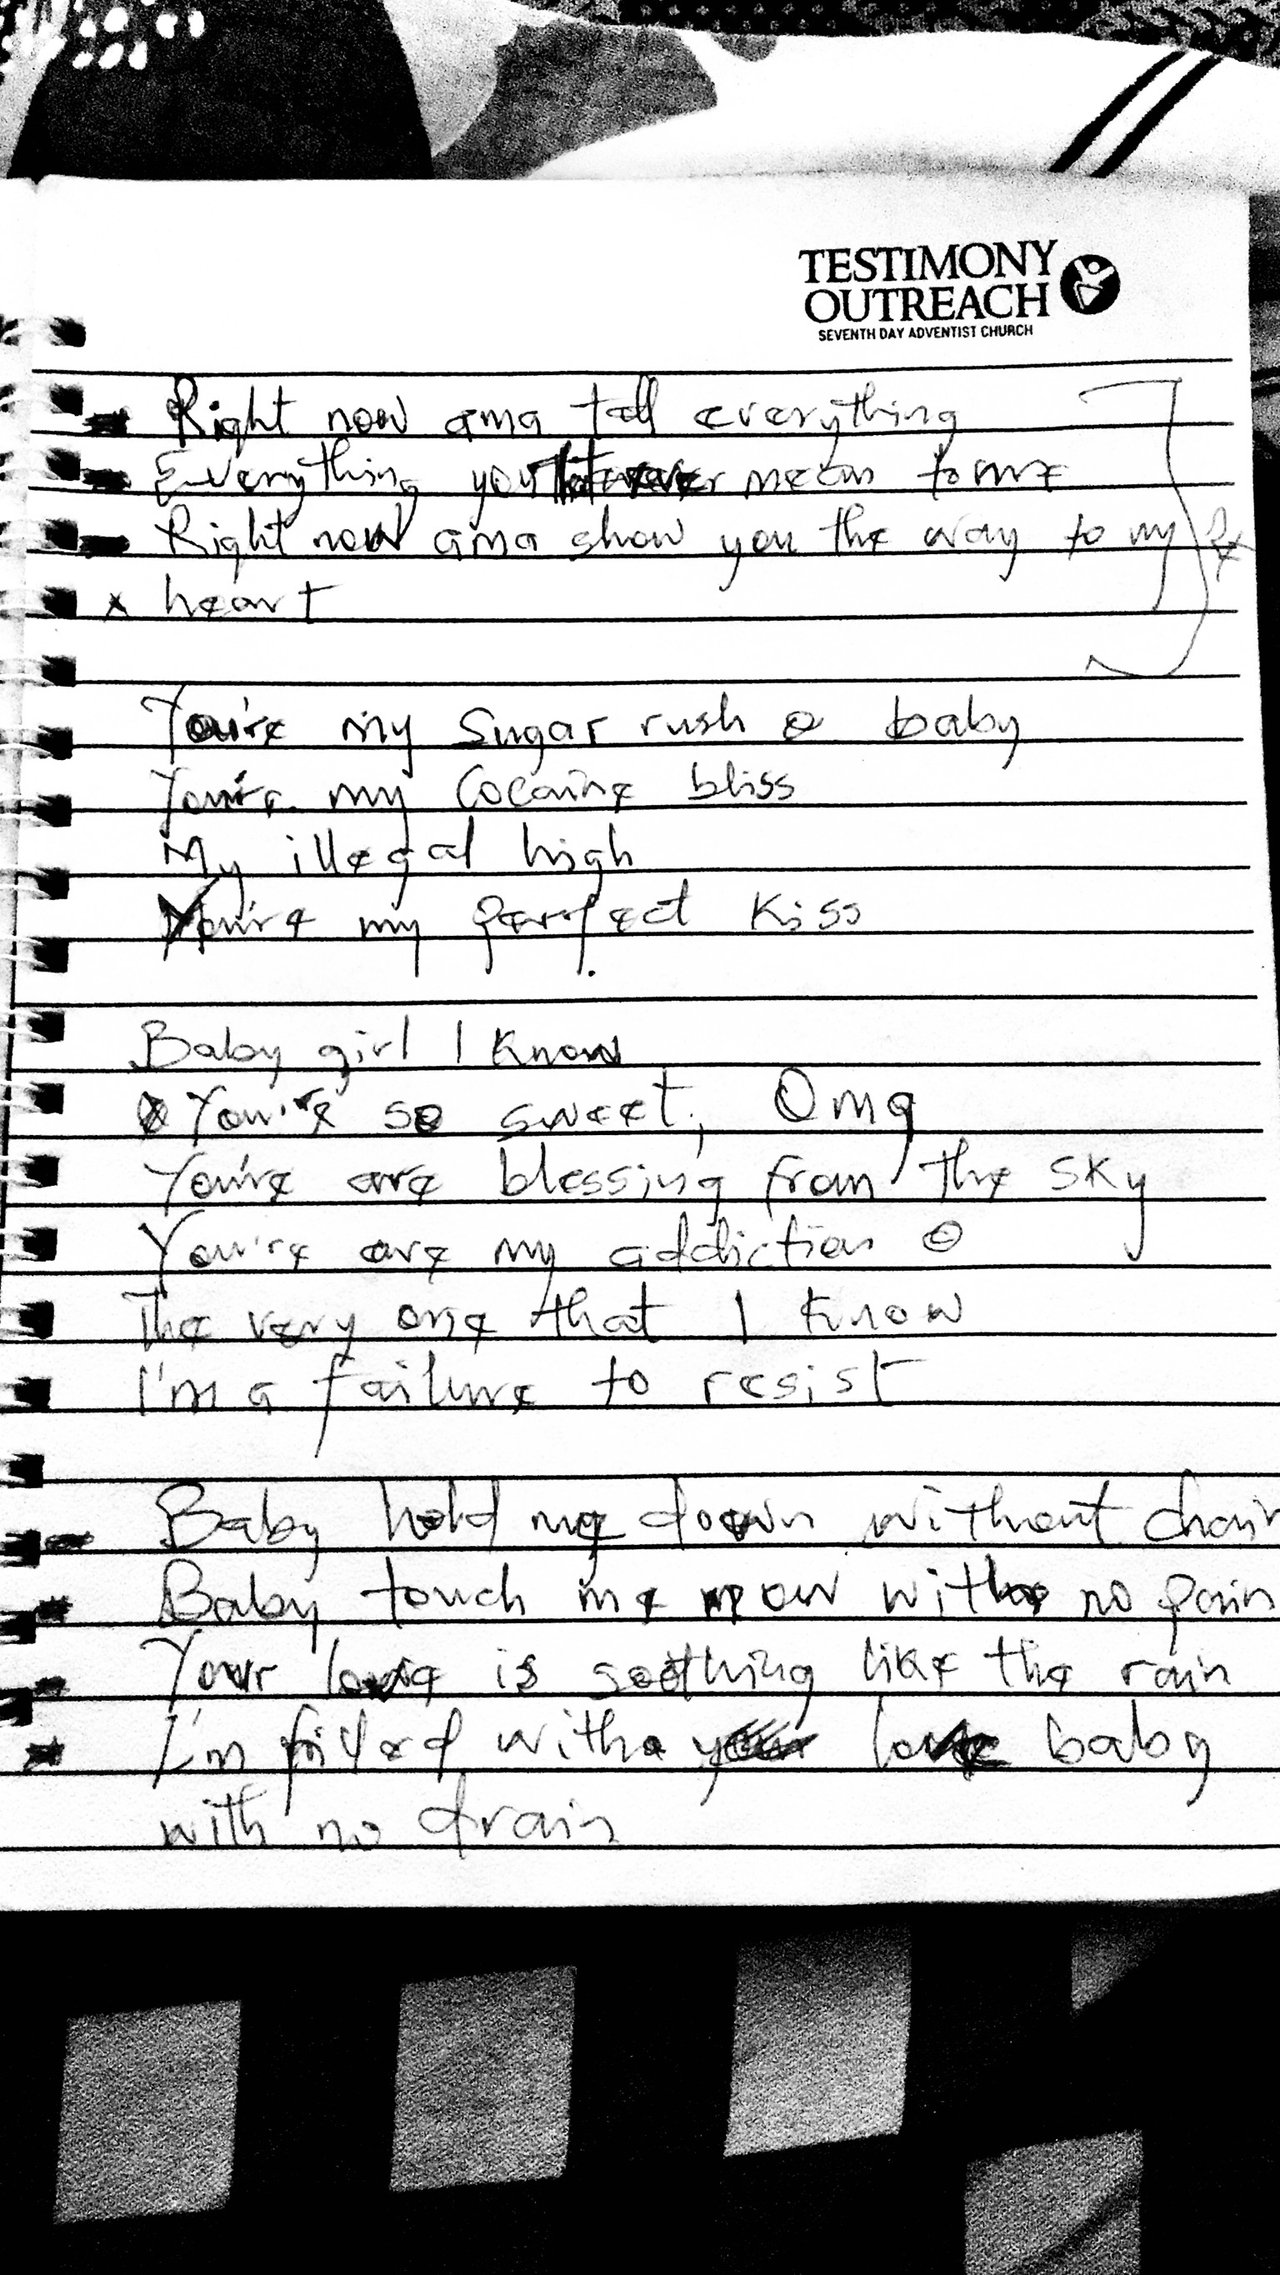 TESTIMONY
OUTREACH
SEVENTH DAY ADVENTIST CHURCH
Right now ama tell everything
Everything you mean to me
Right now ama show you the way to my
x heart
You're my Sugar rush baby
You're my Cocaine bliss
My illegal high
You're my perfect Kiss
Baby girl I know
You're so sweet, Omg
You're are blessing from the sky
You're are my addiction
The very one that I know
I'm a failure to resist
Baby hold me down without chain
Baby touch me now with no pain
Your love is soothing like the rain
I'm filled with love baby
with no drain